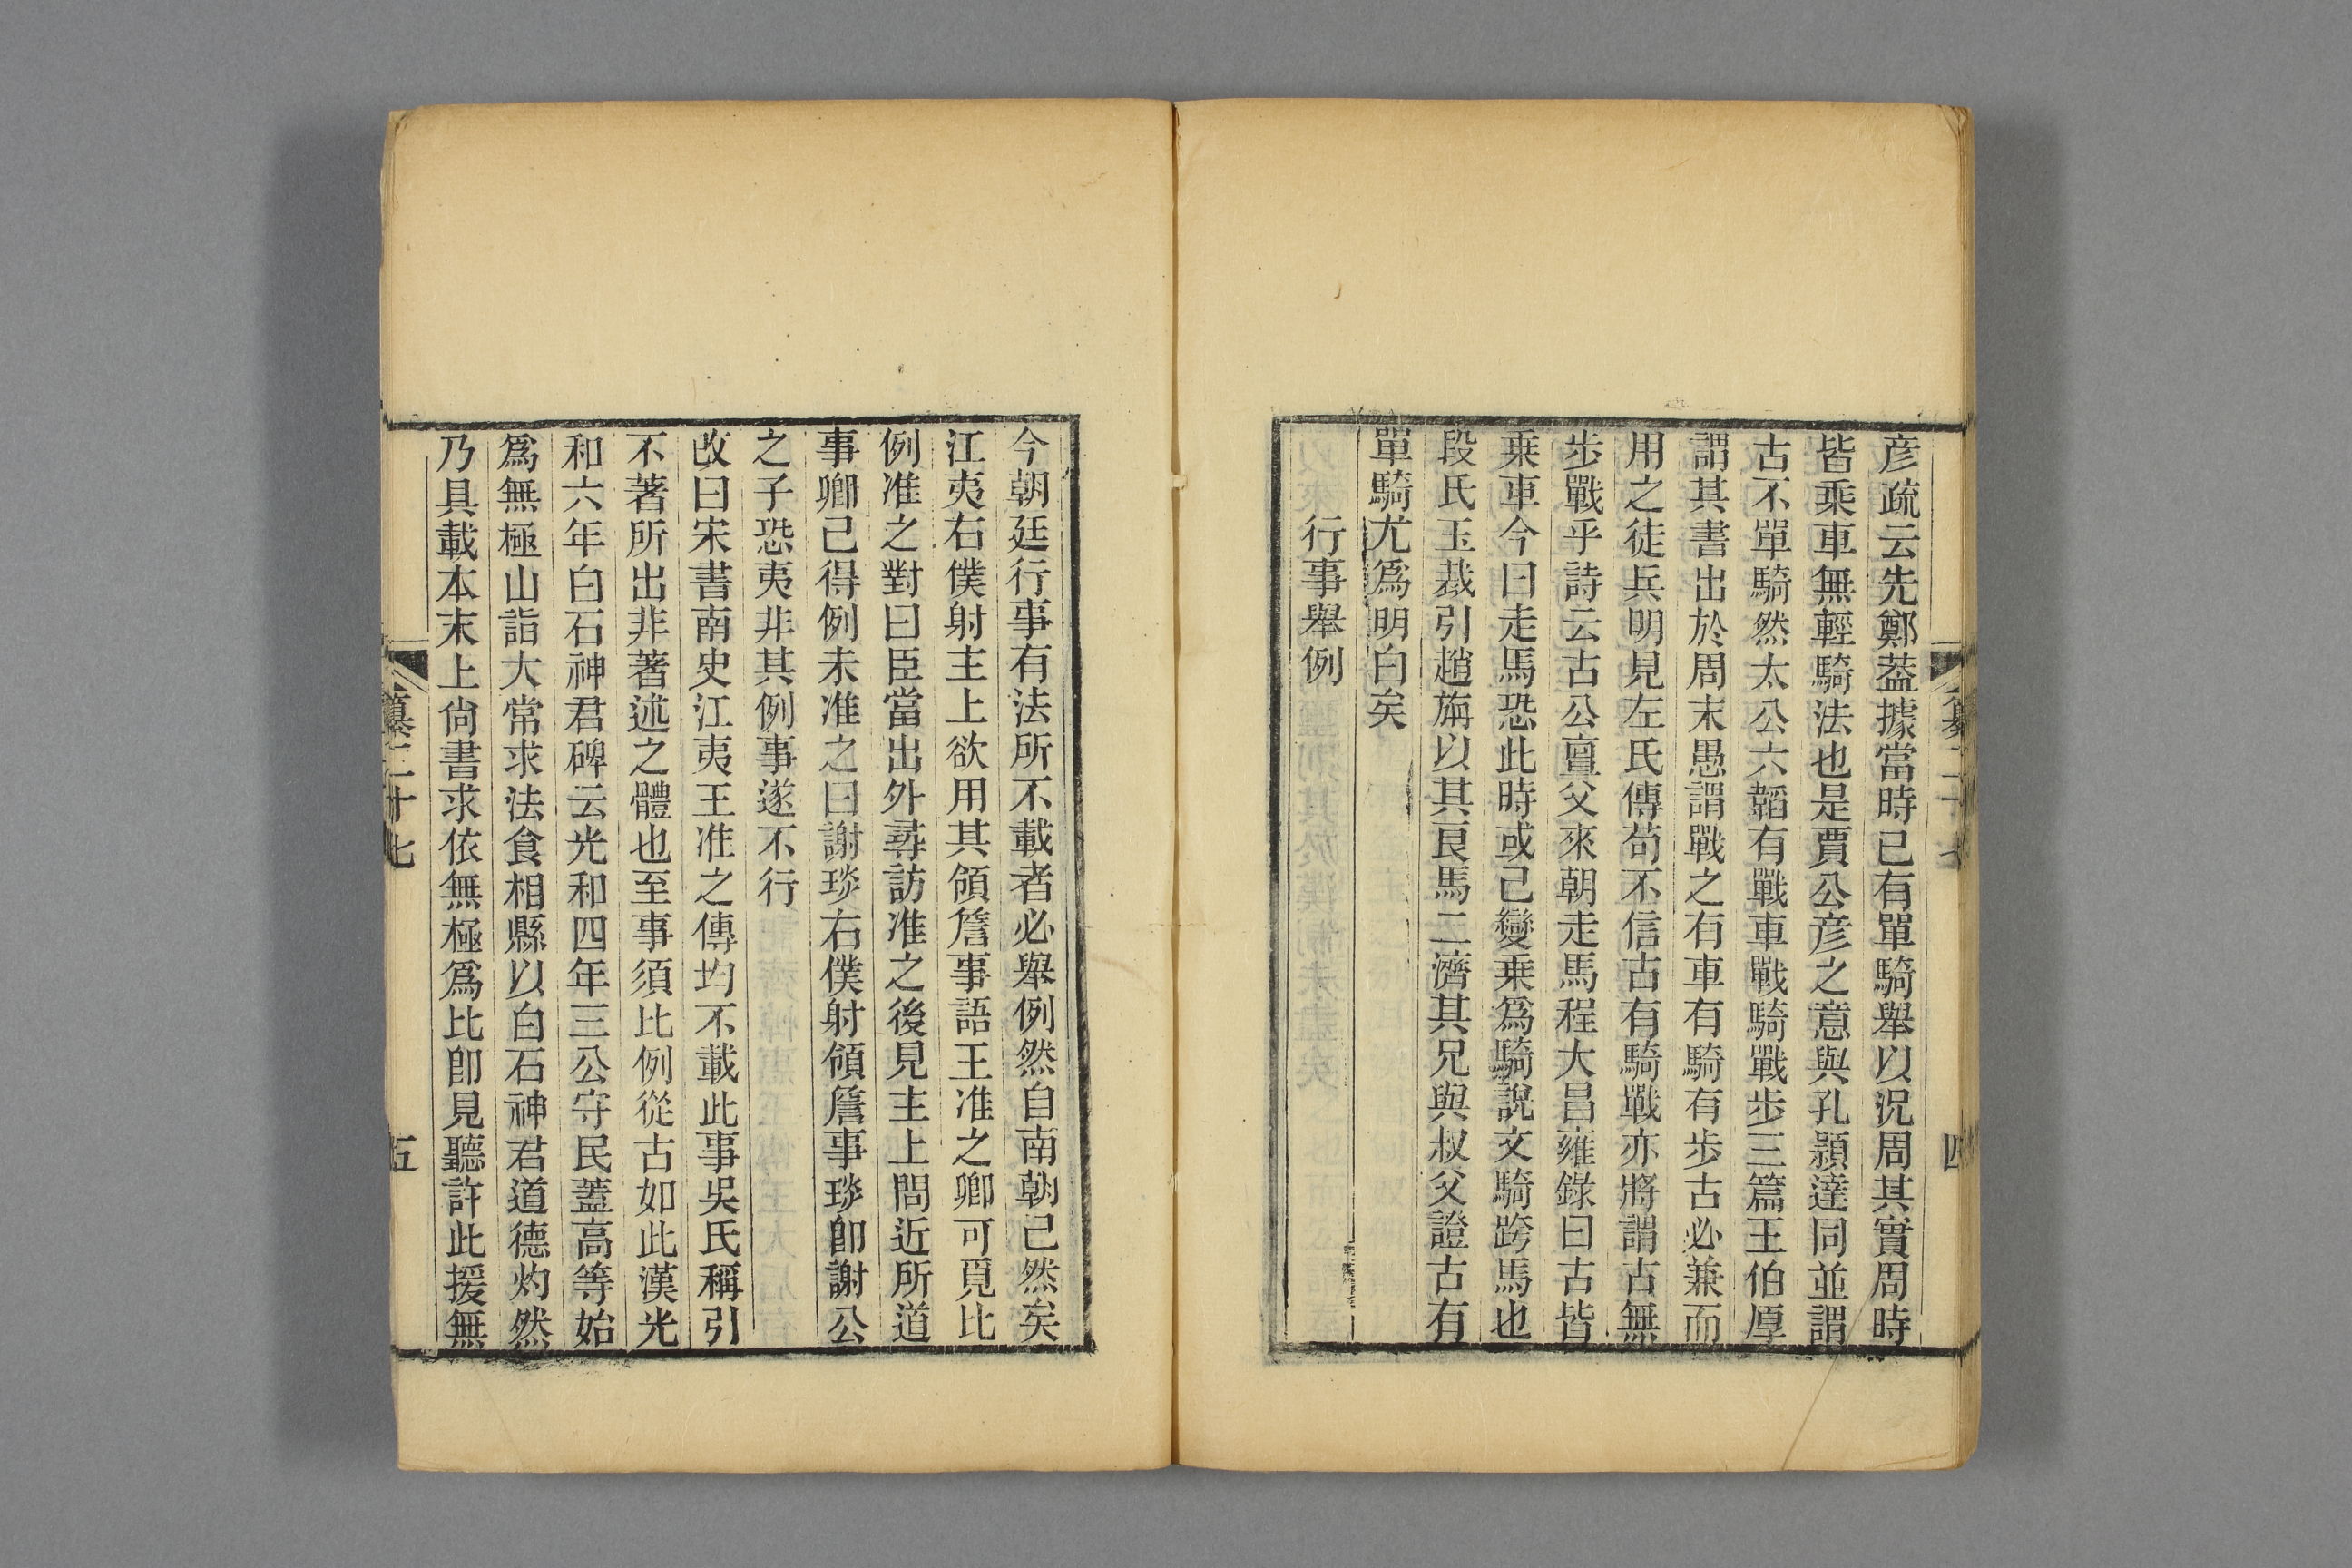 彦疏云先鄭葢據當時已有單騎舉以況周其實周時
皆乘車無輕騎法也是賈公彦之意與孔潁達同並謂
古不單騎然太公六韜有戰車戰騎戰步三篇王伯厚
謂其書出於周末愚謂戰之有車有騎有步古必兼而
用之徒兵明見左氏傳苟不信古有騎戰亦將謂古無
步戰乎詩云古公亶父來朝走馬程大昌雍錄曰古皆
乘車今曰走馬恐此時或已變乘爲騎說文騎跨馬也
段氏玉裁引趙旃以其良馬二濟其兄與叔父證古有
單騎尤爲明白矣
行事舉例
今朝廷行事有法所不載者必舉例然自南朝已然矣
江夷右僕射主上欲用其領詹事語王准之卿可覓比
例准之對曰臣當出外尋訪准之後見主上問近所道
事卿已得例未准之曰謝琰右僕射領詹事琰卽謝公
之子恐夷非其例事遂不行
攺曰宋書南史江夷王准之傳均不載此事吳氏稱引
不著所出非著述之體也至事須比例從古如此漢光
和六年白石神君碑云光和四年三公守民葢高等始
爲無極山詣大常求法食相縣以白石神君道德灼然
乃具載本末上尙書求依無極爲比卽見聽許此援無
五